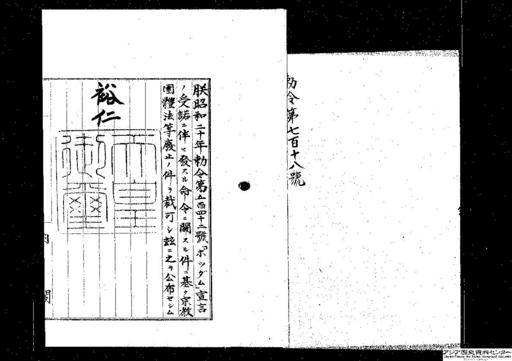 勅令第七百十八號
朕昭和二十年勅令第五百四十二號「ポツダム」宣言
ノ受諾ニ伴ヒ發スル命令ニ關スル件ニ基ク宗教
團體法等廢止ノ件ヲ裁可シ茲ニ之ヲ公布セシム
裕仁
天皇
御璽
内閣
アジア歴史資料センター